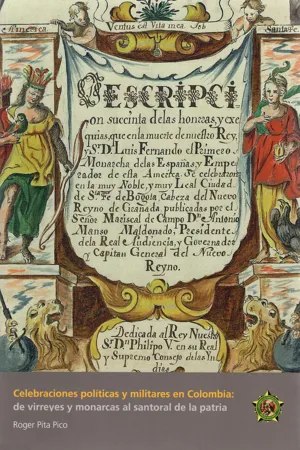 Ventus est Vita mea. Iob
America.
Santafe.
DESCRIPCI
on succinta delas honrras, y exe
quias, que en la muerte de nuestro Rey,
y Sr. Dn. Luis Fernando el Primero
Monarcha delas Españas, y Empe
rador de esta America. Se celebraron
en la muy Noble, y muy Leal Ciudad
de Santa Fee de Bogota Cabeza del Nuevo
Reyno de Granada, publicadas por el
Señor Mariscal de Campo Dn. Antonio
Manso Maldonado, Presidente
dela Real Audiencia, y Governador
y Capitan General del Nuevo
Reyno.
Dedicada al Rey Nuestro
Sr. Dn. Philipo V. en su Real
y Supremo Consejo de las In
dias
Celebraciones políticas y militares en Colombia:
de virreyes y monarcas al santoral de la patria
Roger Pita Pico